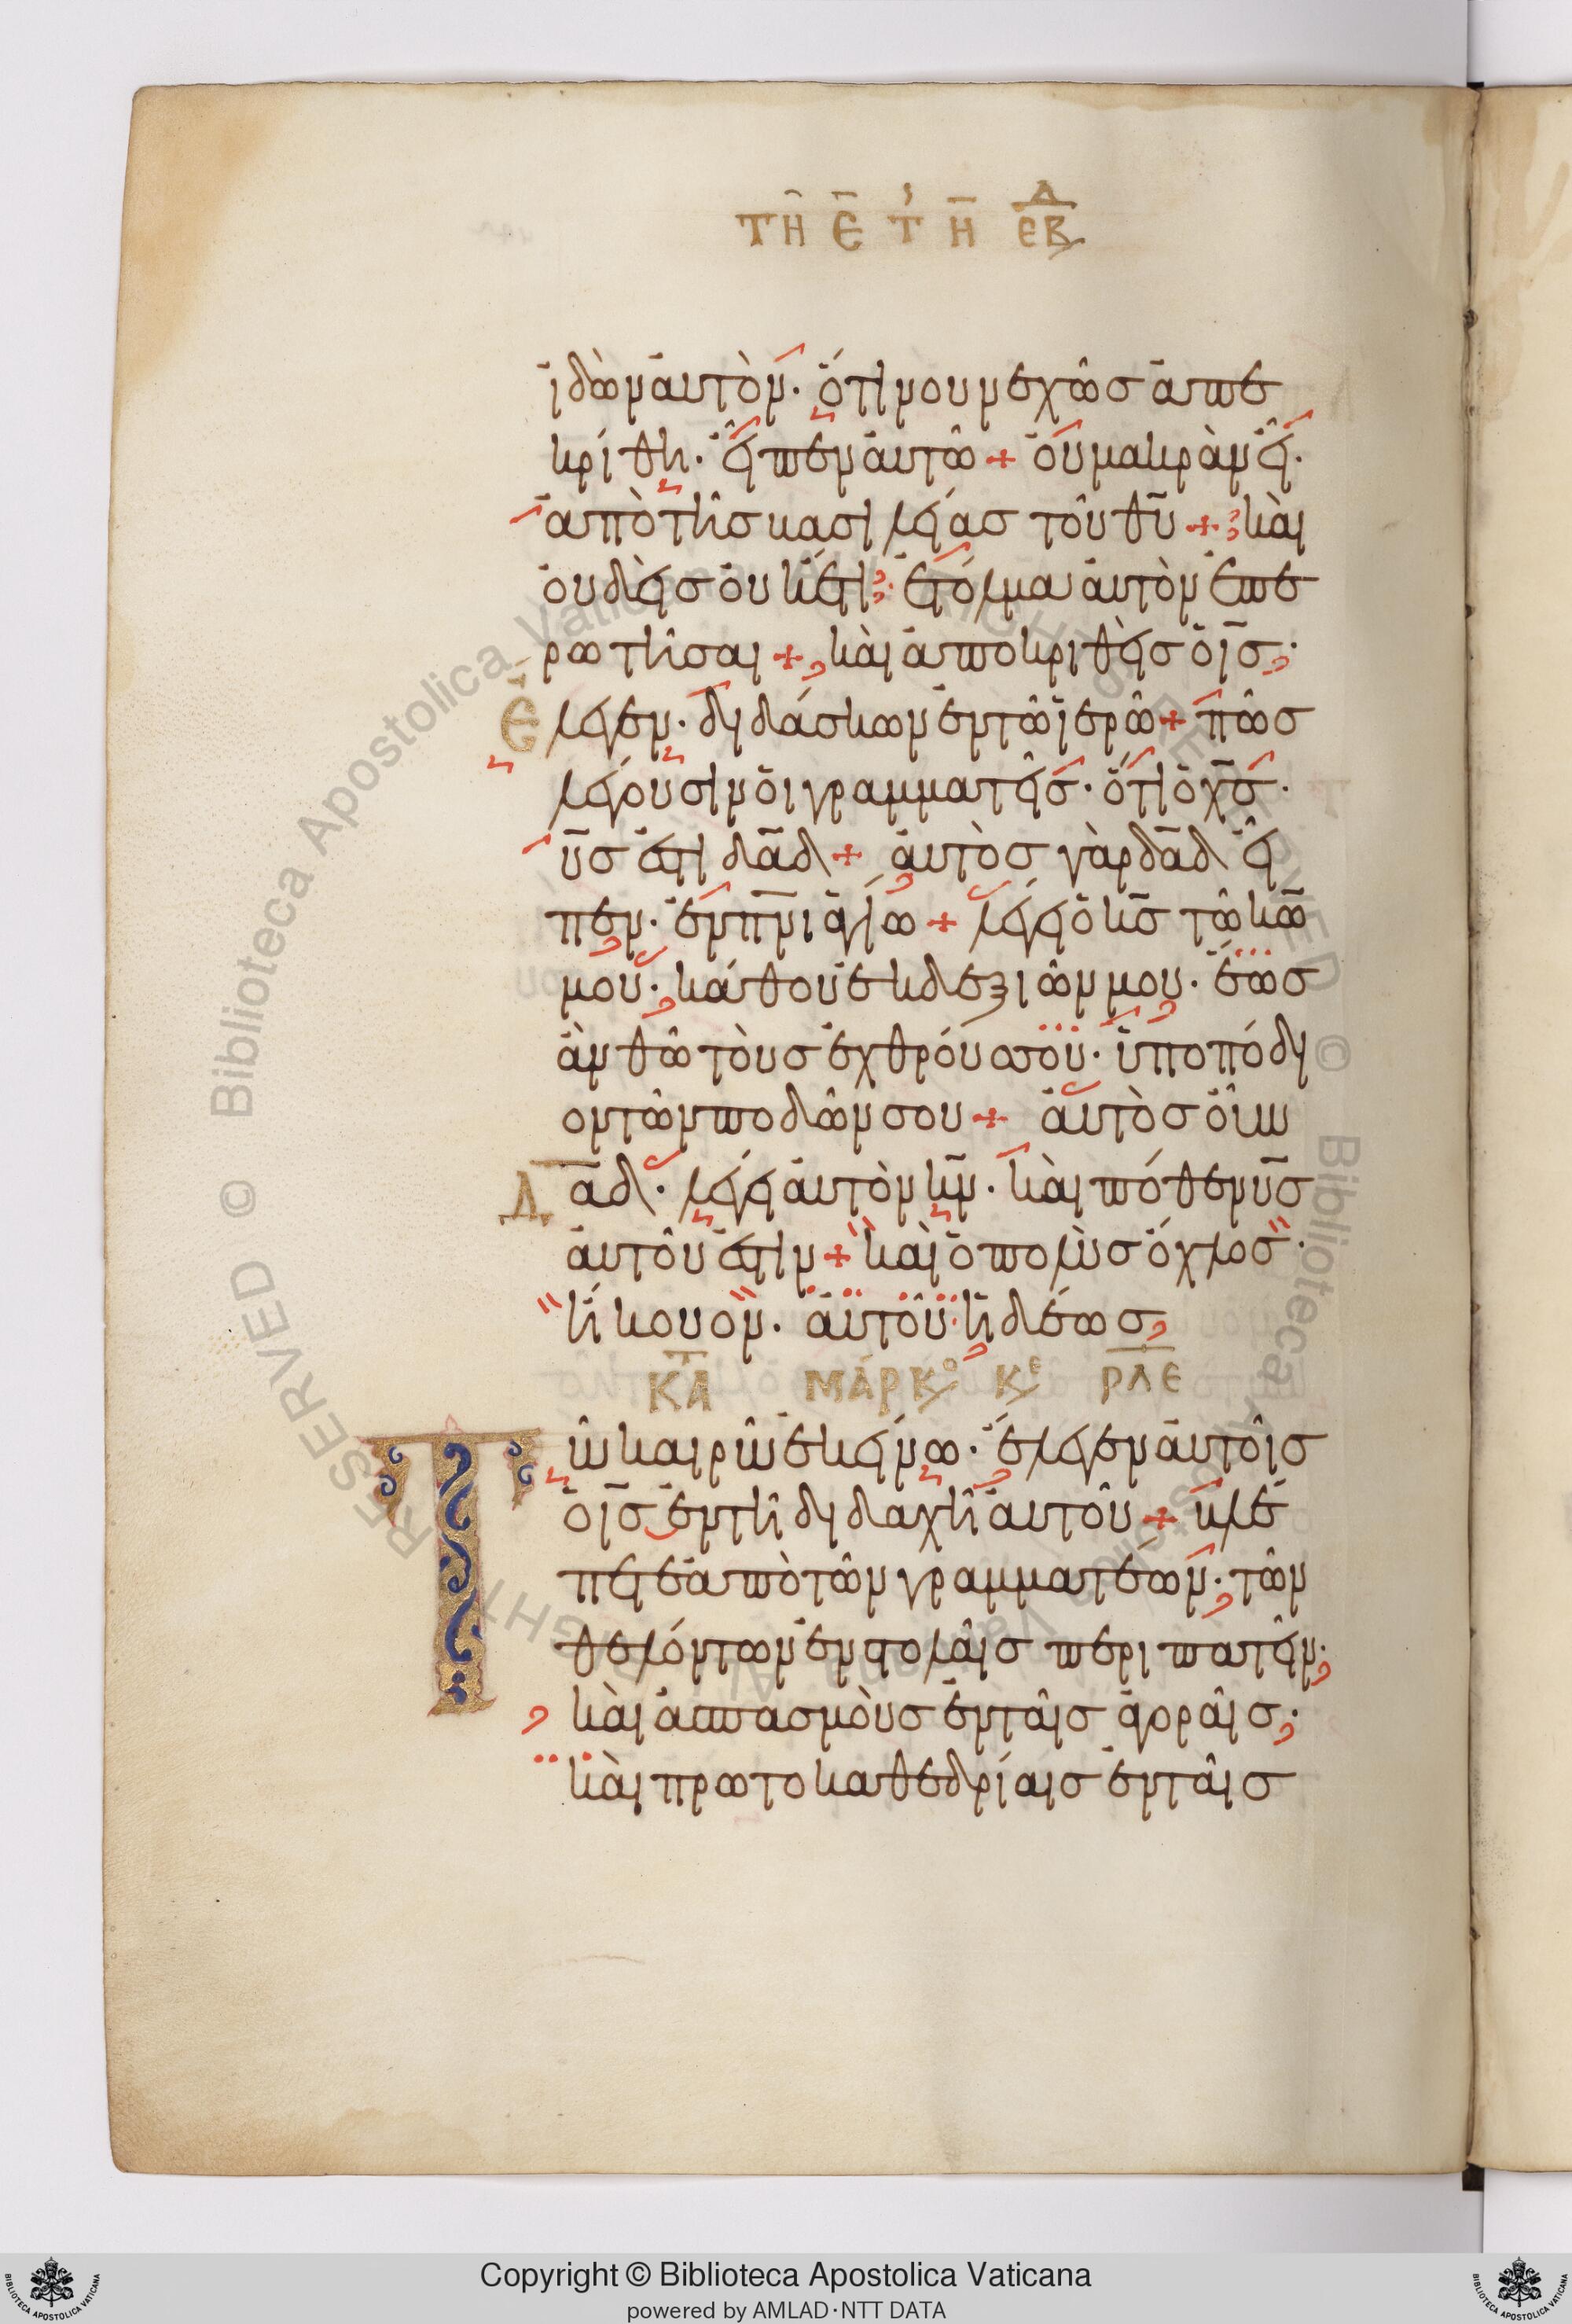 τῆ ε̄ τ η̄ εβδ
ἰδὼν αὐτὸν· ὅτι νουνεχῶσ ἀπε
κρίθη· εἶπεν αὐτῶ + οὐ μακρὰν εἶ·
ἀπὸ τῆσ βασιλείασ τοῦ θ̅υ̅ + καὶ
οὐδεὶσ οὐκέτι· ἐτόλμα αὐτὸν ἐπε
ρωτῆσαι + καὶ ἀποκριθεὶσ ὁ ι̅σ̅·
ἔλεγεν· διδάσκων ἐν τῶ ἱερῶ + πῶσ
λέγουσιν οἱ γραμματεῖσ· ὅτι ὁ χ̅σ̅·
υ̅σ̅ ἐστι δ̅α̅δ̅ + αὐτὸσ γὰρ δ̅α̅δ̅ εἶ
πεν· ἐν π̅ν̅ι ἁγίω + λέγει ὁ κ̅σ̅ τῶ κ̅ω̅
μου· κάθου ἐκ δεξιῶν μου· ἕωσ
ἂν θῶ τοὺσ ἐχθρούσ σου· ὑποπόδι
ον τῶν ποδῶν σου + αὐτὸσ οὖν
Δ̅α̅δ̅· λέγει αὐτὸν κ̅ν̅· καὶ πόθεν υ̅σ̅
αὐτοῦ ἐστιν + καὶ ὁ πολὺσ ὄχλοσ·
ἤκουον· αὐτοῦ ἡδέωσ
ΚΑΤ ΜΆΡΚΟ ΚΕ ΡΛΕ
Τῶ καιρῶ ἐκείνω· ἔλεγεν αὐτοῖσ
ὁ ι̅σ̅ ἐν τῆ διδαχῆ αὐτοῦ + βλέ
πετε ἀπὸ τῶν γραμματέων· τῶν
θελόντων ἐν στολαῖσ περιπατεῖν·
καὶ ἀσπασμοὺσ ἐν ταῖσ ἀγοραῖσ·
καὶ πρωτοκαθεδρίαισ ἐν ταῖσ
Copyright © Biblioteca Apostolica Vaticana
powered by AMLAD·NTT DATA